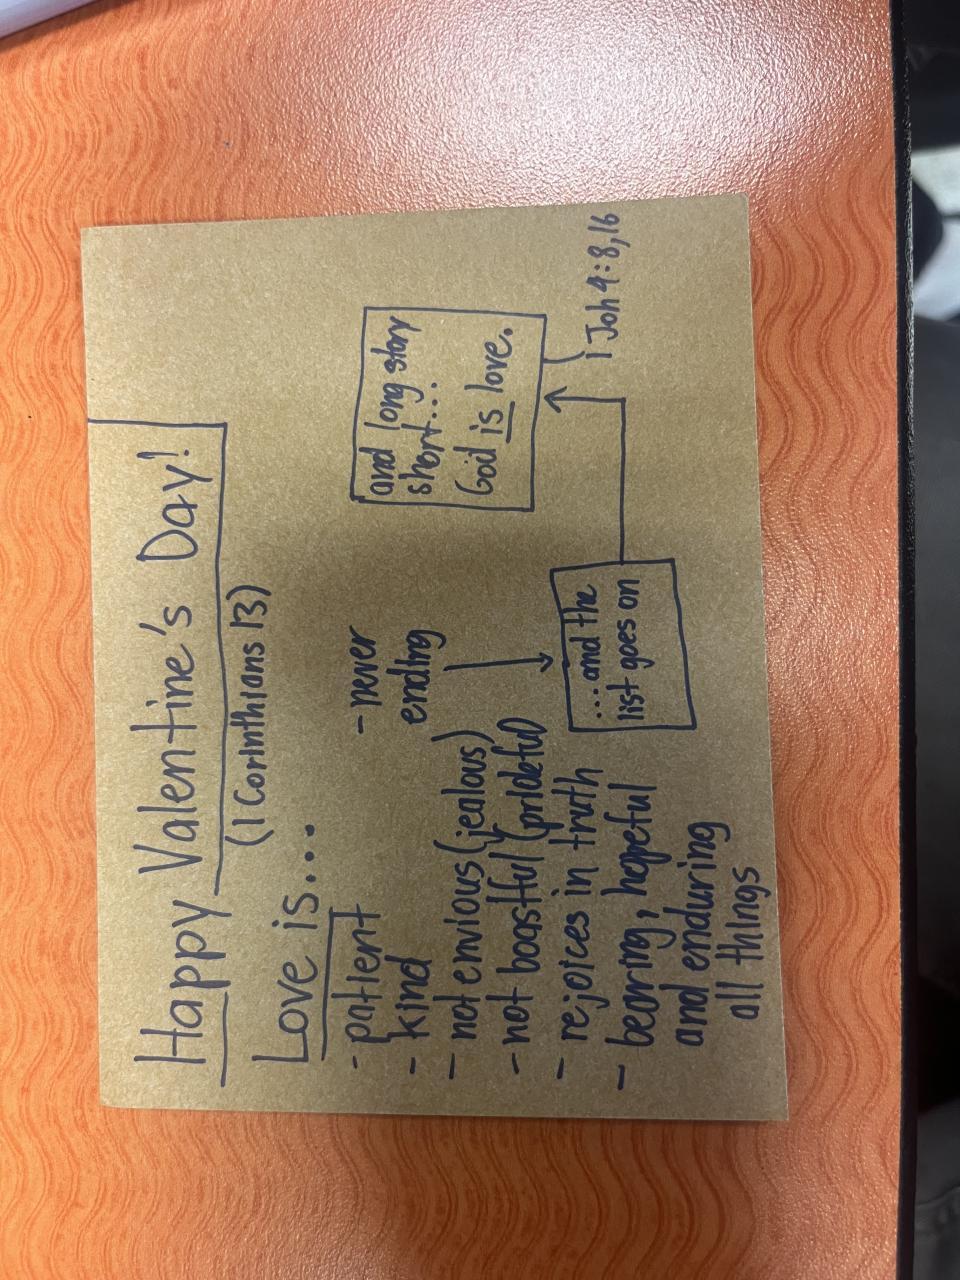 Happy Valentine's Day!
(1 Corinthians 13)
Love is...
- patient
- kind
- not envious (jealous)
- not boastful (prideful)
- rejoices in truth
- bearing, hopeful
and enduring
all things
- never
ending
...and the
list goes on
and long story
short...
God is love.
1 Joh 4:8,16